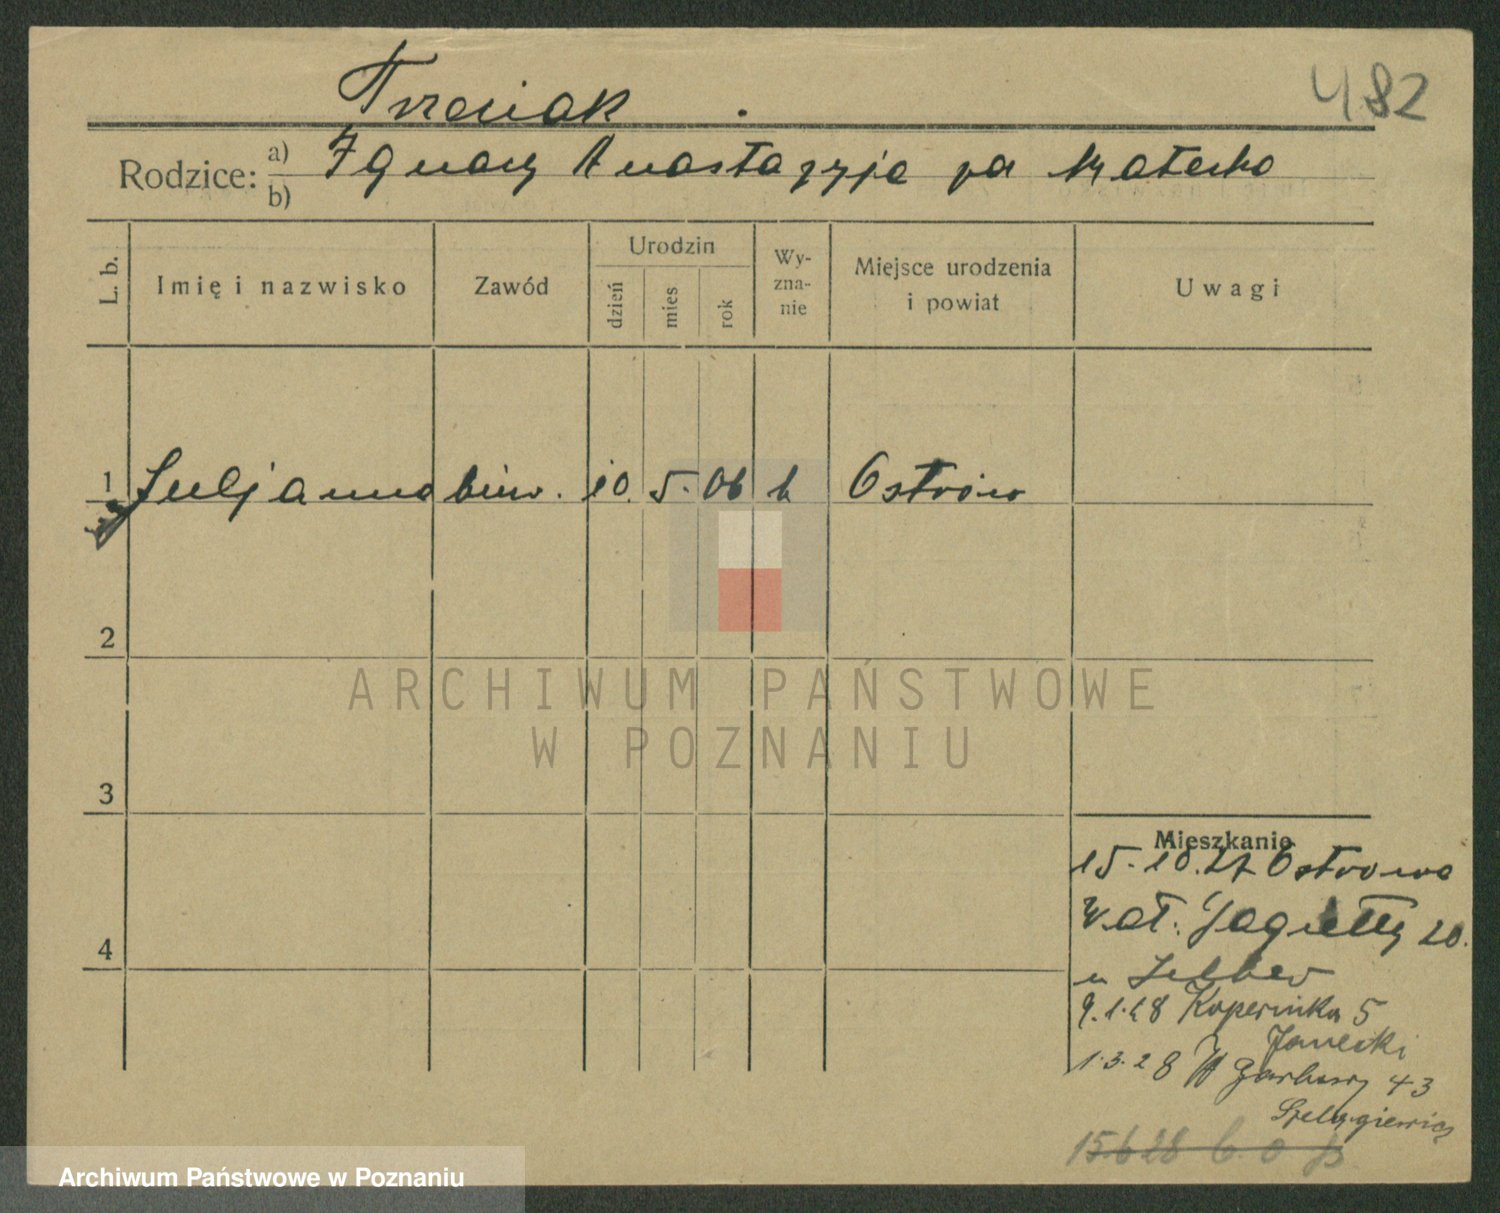 482
Trzeciak
Rodzice: a) Ignacy Anastazyja
b)
L. b.
Imię i nazwisko
Zawód
Urodzin
dzień
mies
rok
Wy-
zna-
nie
Miejsce urodzenia
i powiat
Uwagi
1 Juljanna biur. 10. 5. 06 k Ostrów
2
ARCHIWUM PAŃSTWOWE
W POZNANIU
3
4
Mieszkanie
15.10.27 Ostrowo
Wał. Jagiełły 20.
u
9.1.28 Kopernika 5
Janecki
1.3.28 W Garbary 43
Szelągiewicz
15 6 28
Archiwum Państwowe w Poznaniu